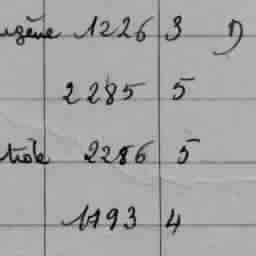 ugène 1226 3 1)
2285 5
2286 5
1193 4